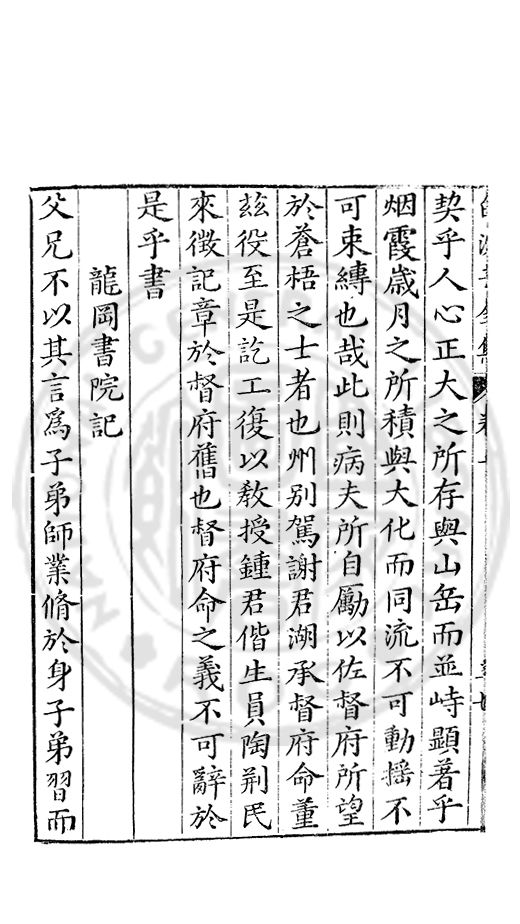 契乎人心正大之所存與山岳而並峙顯著乎
烟霞歲月之所積與大化而同流不可動搖不
可束縳也哉此則病夫所自勵以佐督府所望
於蒼梧之士者也州別駕謝君湖承督府命董
兹役至是訖工復以敎授鍾君偕生員陶荆民
來徵記章於督府舊也督府命之義不可辭於
是乎書
龍岡書院記
父兄不以其言爲子弟師業脩於身子弟習而